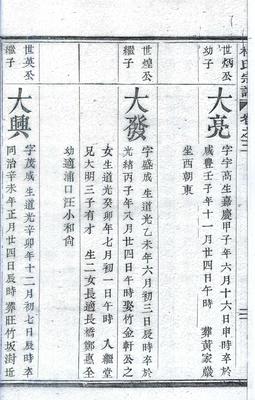 林氏宗譜 卷之三
世炳公
幼子
大亮
字宇高生嘉慶甲子年六月十六日申時卒於
咸豐壬子年十一月廿四日午時 葬黃家嚴
坐西朝東
世煌公
繼子
大發
字盛成 生道光乙未年六月初三日辰時卒於
光緒丙子年八月廿四日午時娶竹金軒公之
女生道光癸卯年七月初一日午時 入繼堂
兄大明三子有才 生二女長適長橋鄭惠全
幼適浦口汪小和尚
世英公
繼子
大興
字茂成 生道光辛卯年十二月初七日辰時卒
同治辛未年正月廿四日辰時 葬旺竹坂濤近